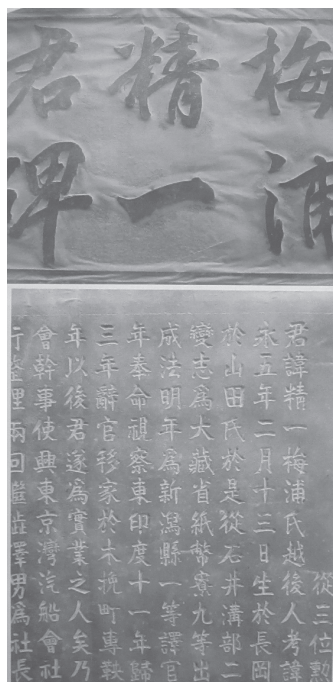 梅浦
精一
君碑
從三位勲
君諱精一梅浦氏越後人考諱
永五年二月十三日生於長岡
於山田氏於是從石井溝部二
變志爲大藏省紙幣寮九等出
成法明年爲新潟縣一等譯官
年奉命視察東印度十一年歸
三年辭官移家於木挽町專鞅
年以後君遂爲實業之人矣乃
會幹事使興東京灣汽船會社
行整理兩回澁澤男爲社長